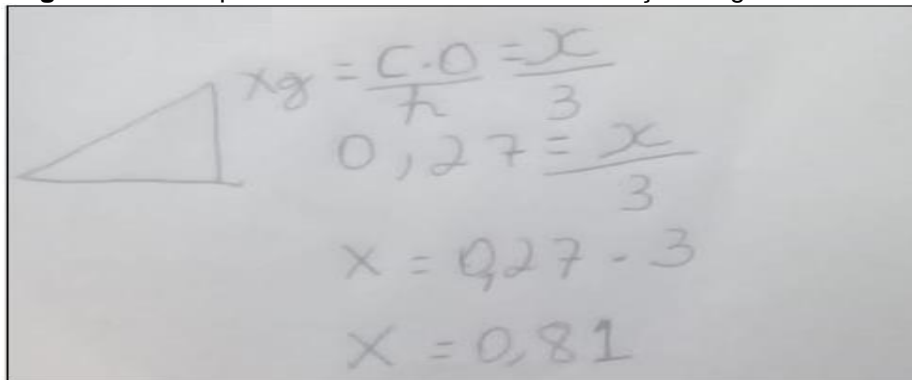 xg = C.O / h = x / 3
0,27 = x / 3
x = 0,27 - 3
x = 0,81